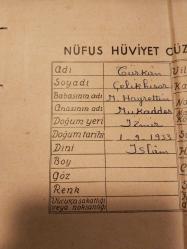 NÜFUS HÜVİYET CÜZ
Adı Gürkan Vil
Soyadı Çelikhisar Ka
Babasının adı M. Hayrettin
Anasının adı Mukaddes
Doğum yeri İzmir
Doğum tarihi 1-9-1933
Dini İslâm
Boy
Göz
Renk
Vücutça sakatlığı
veya noksanlığı